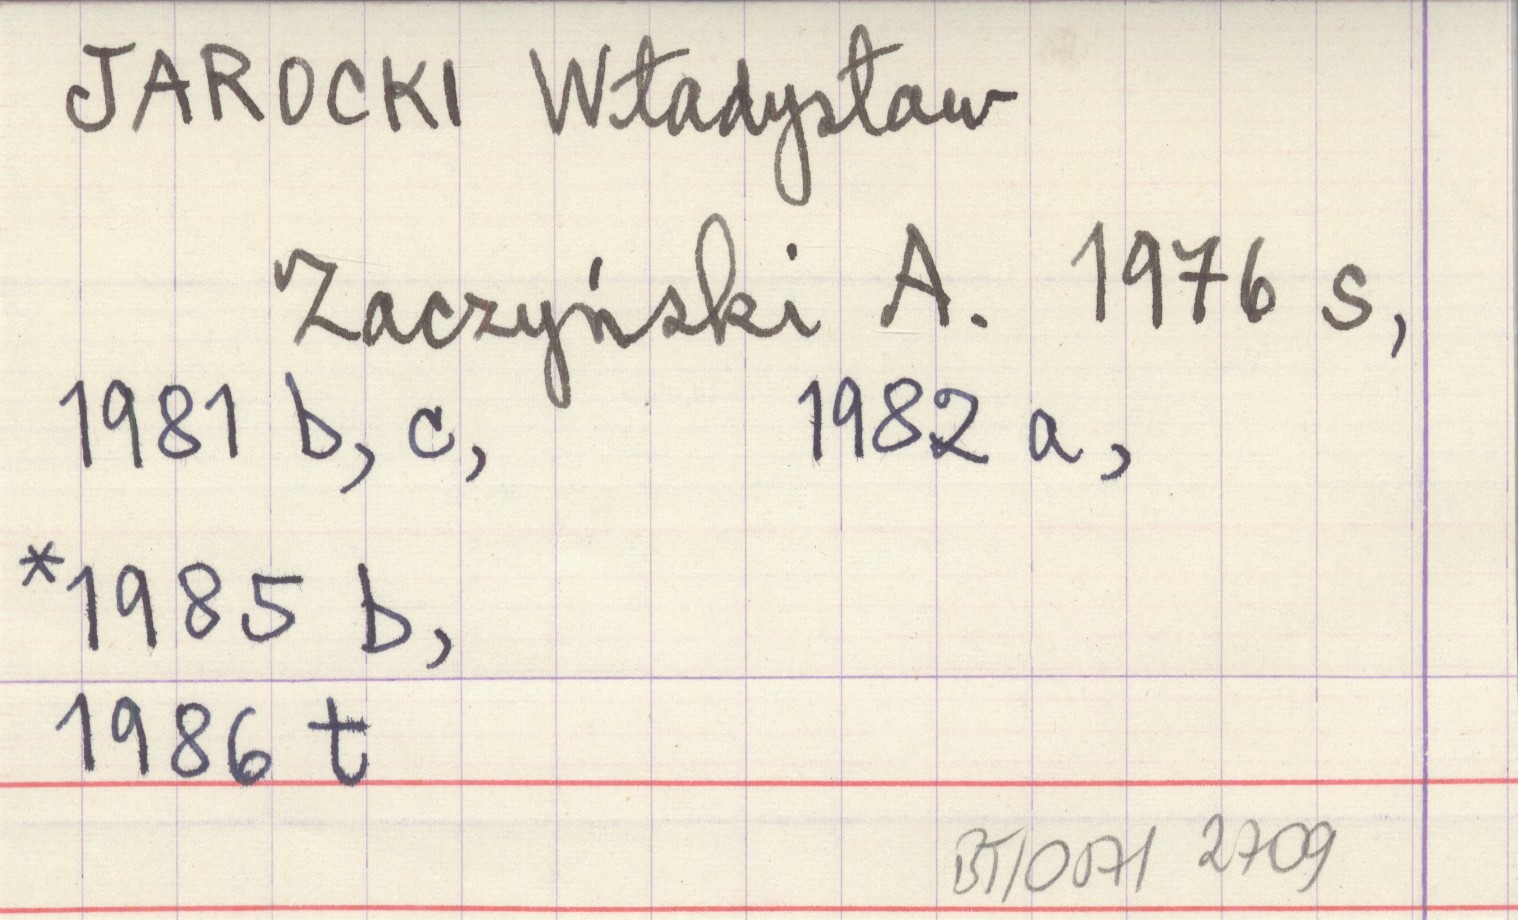 JAROCKI Władysław
Zaczyński A. 1976 s,
1981 b, c, 1982 a,
*1985 b,
1986 t
BT/0071 2709